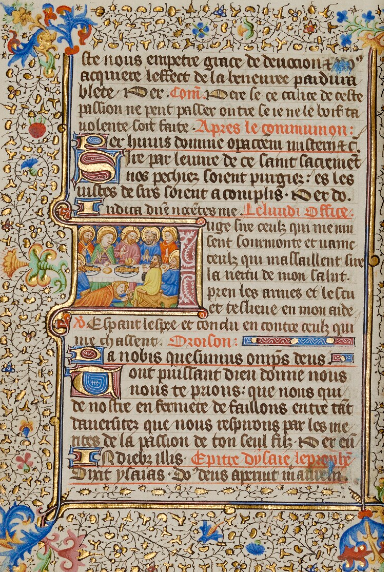 ste nous empetre grace de deuocion &
acquiere leffect de la beneuree pardura
blete. Per. Com. Pere se ce calice de ceste
passion ne peut passer oultre se ie ne le boif ta
uolente soit faite. Apres le communion:
Per huius domine
Sire par leuure de ce saint sacrement
nos pechiez soient purgiez: et les
iustes desirs soient acomplis. Per do.
Iudica dne nocentes me. Le lundi Office.
Iuge sire ceulz qui me nui
sent sourmonte et uaine
ceulz qui massaillent sire
la uertu de mon salut.
pren les armes et lescu
et te lieue en mon aide
V. Espant lespee et conclu en contre ceulz qui
me chassent. Oroison:
Da nobis quesumus omps deus
Tout puissant dieu donne nous
nous te prions: que nous qui
de nostre enfermete defaillons entre tant
dauersitez que nous respirons par les me
rites de la passion de ton seul filz. Per eun
In dieb illis. Epitre dysaie le prophete
Dixit ysaias. Dns deus aperuit